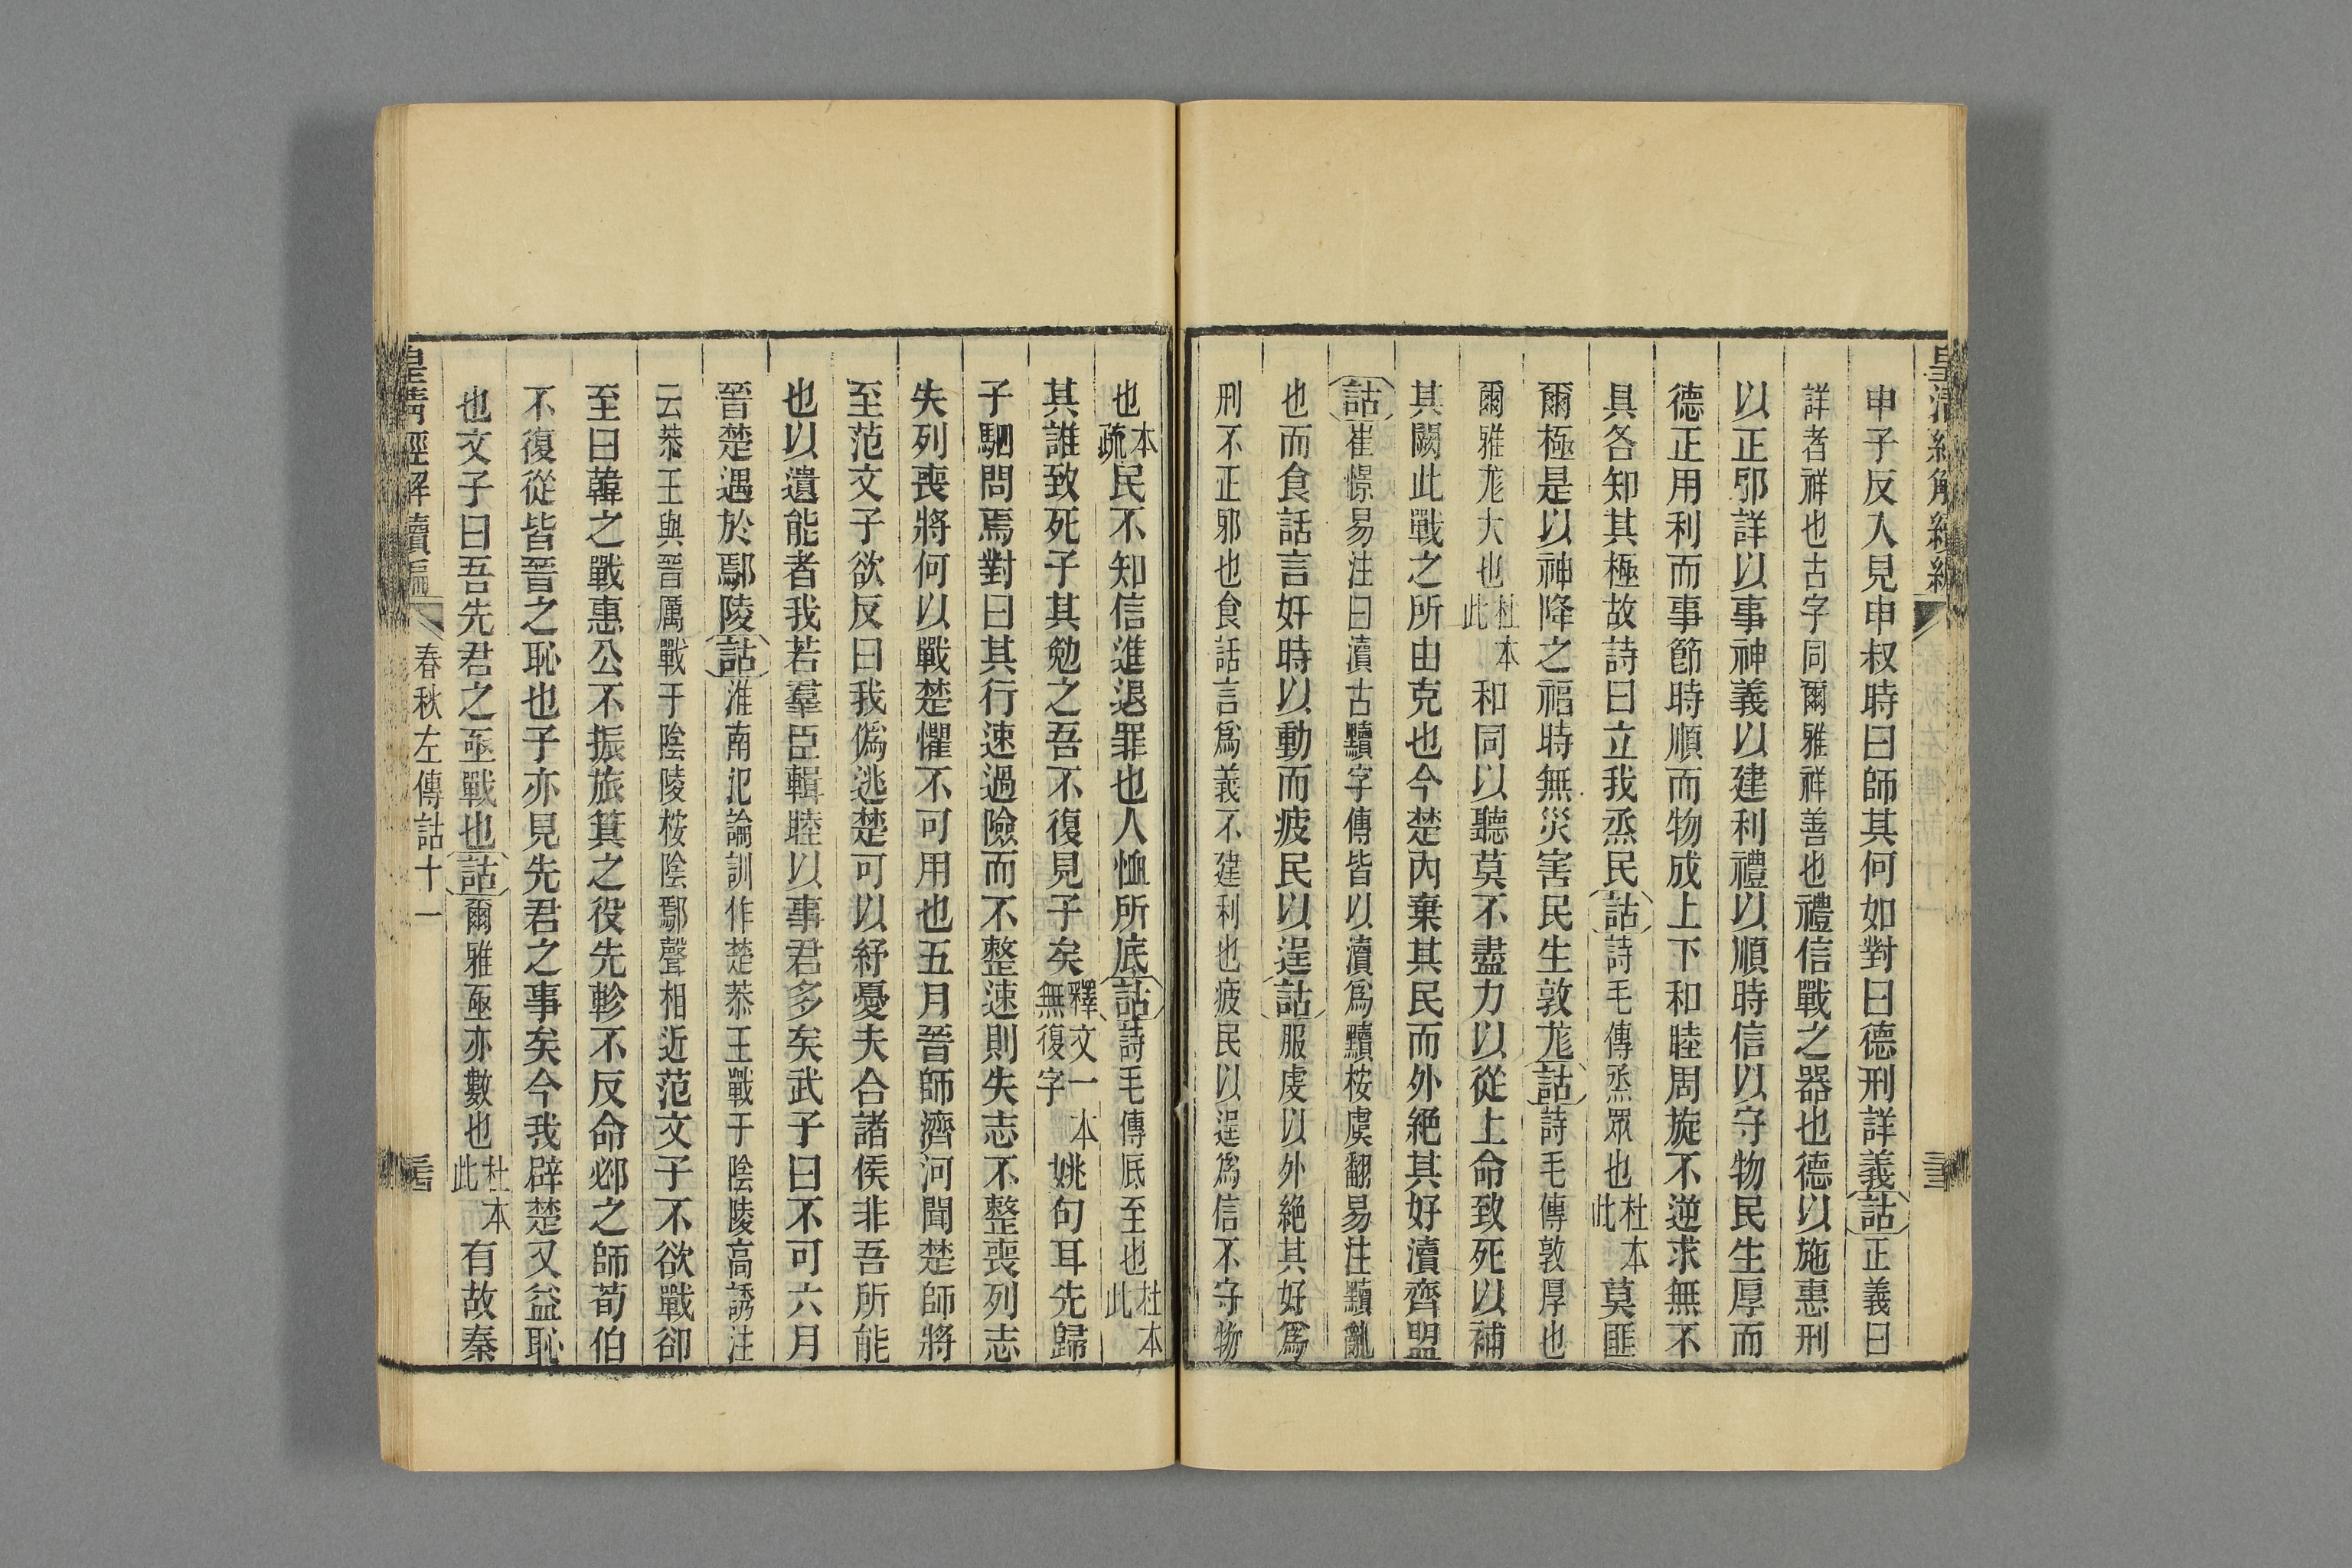 皇清經解續編
申子反入見申叔時曰師其何如對曰德刑詳義詁正義曰
詳者祥也古字同爾雅祥善也禮信戰之器也德以施惠刑
以正邪詳以事神義以建利禮以順時信以守物民生厚而
德正用利而事節時順而物成上下和睦周旋不逆求無不
具各知其極故詩曰立我烝民詁詩毛傳烝眾也杜本此莫匪
爾極是以神降之福時無災害民生敦厖詁詩毛傳敦厚也
爾雅厖大也杜本此和同以聽莫不盡力以從上命致死以補
其闕此戰之所由克也今楚內棄其民而外絕其好瀆齊盟
詁崔憬易注曰瀆古黷字傳皆以瀆爲黷桉虞翻易注黷亂
也而食話言奸時以動而疲民以逞詁服虔以外絕其好爲
刑不正邪也食話言爲義不建利也疲民以逞爲信不守物
也本疏民不知信進退罪也人恤所底詁詩毛傳底至也杜本此
其誰致死子其勉之吾不復見子矣釋文一本無復字姚句耳先歸
子駟問焉對曰其行速過險而不整速則失志不整喪列志
失列喪將何以戰楚懼不可用也五月晉師濟河聞楚師將
至范文子欲反曰我僞逃楚可以紓憂夫合諸侯非吾所能
也以遺能者我若羣臣輯睦以事君多矣武子曰不可六月
晉楚遇於鄢陵詁淮南氾論訓作楚恭王戰于陰陵高誘注
云恭王與晉厲戰于陰陵桉陰鄢聲相近范文子不欲戰卻
至曰韓之戰惠公不振旅箕之役先軫不反命邲之師荀伯
不復從皆晉之恥也子亦見先君之事矣今我辟楚又益恥
也文子曰吾先君之亟戰也詁爾雅亟亦數也杜本此有故秦
皇清經解續編 春秋左傳詁十一